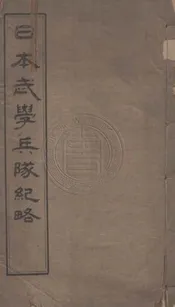 日本武學兵隊紀略